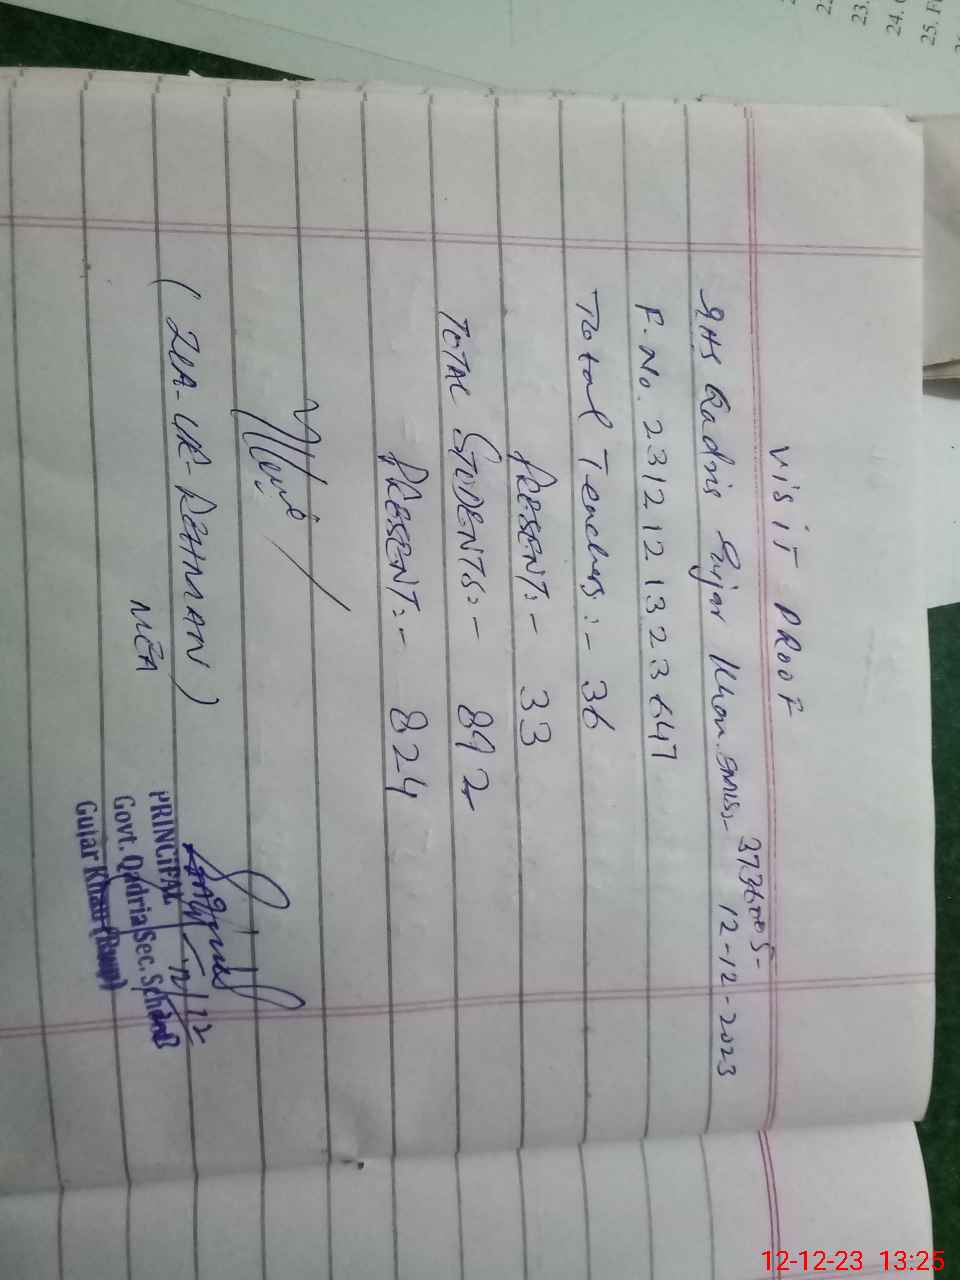 VISIT PROOF
37360005-
GHS Qadria Gujar Khan. EMIS:- 12-12-2023
F. No. 2312121323647
Total Teachers :- 36
PRESENT:- 33
TOTAL STUDENTS:- 892
PRESENT:- 824
(ZIA-UR-REHMAN)
MEA
12/12
PRINCIPAL
Govt. Qadria Sec. School
Gujar Khan (Rwp)
23.
24.
25.
12-12-23 13:25